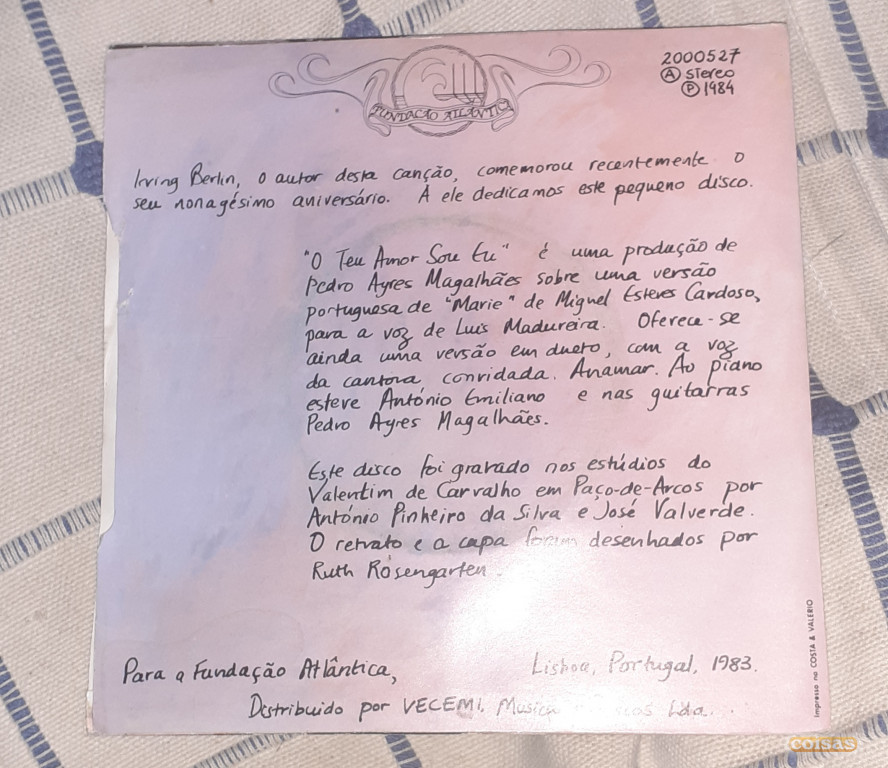 FUNDAÇÃO ATLÂNTICA
2000527
Ⓐ Stereo
Ⓟ 1984
Irving Berlin, o autor desta canção, comemorou recentemente o
seu nonagésimo aniversário. A ele dedicamos este pequeno disco.
"O Teu Amor Sou Eu" é uma produção de
Pedro Ayres Magalhães sobre uma versão
portuguesa de "Marie" de Miguel Esteves Cardoso,
para a voz de Luís Madureira. Oferece-se
ainda uma versão em dueto, com a voz
da cantora convidada. Anamar. Ao piano
esteve António Emiliano e nas guitarras
Pedro Ayres Magalhães.
Este disco foi gravado nos estúdios do
Valentim de Carvalho em Paço-de-Arcos por
António Pinheiro da Silva e José Valverde.
O retrato e a capa foram desenhados por
Ruth Rosengarten.
Para a Fundação Atlântica,
Lisboa, Portugal, 1983.
Distribuido por VECEMI, Musica Lda.
Impresso na COSTA & VALÉRIO
coisas